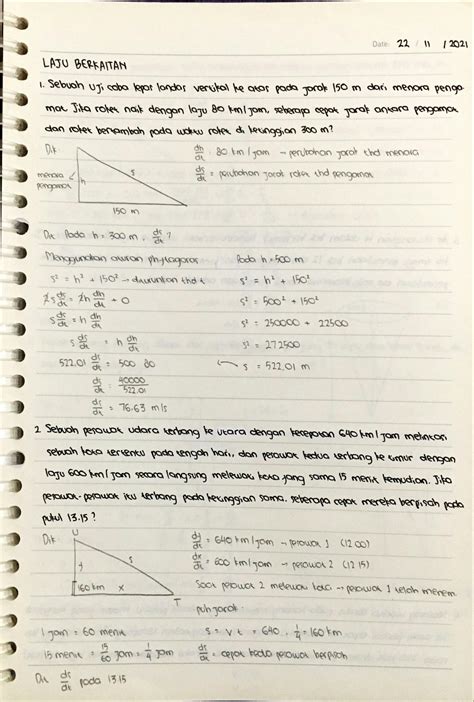 Date: 22 / 11 / 2021
LAJU BERKAITAN
1. Sebuah uji coba lepas landas vertikal ke atas pada jarak 150 m dari menara penga-
mat. Jika roket naik dengan laju 80 km/jam, seberapa cepat jarak antara pengamat
dan roket bertambah pada waktu roket di ketinggian 300 m?
Dik
menara pengamat
h
s
150 m
dh/dt = 80 km/jam → perubahan jarak thd menara
ds/dt = perubahan jarak roket thd pengamat
Dit Pada h = 300 m, ds/dt ?
Menggunakan aturan phytagoras
s² = h² + 150² → diturunkan thd t
2s ds/dt = 2h dh/dt + 0
s ds/dt = h dh/dt
s ds/dt = h dh/dt
522.01 ds/dt = 500 80
ds/dt = 40000/522.01
ds/dt = 76.63 m/s
Pada h = 500 m
s² = h² + 150²
s² = 500² + 150²
s² = 250000 + 22500
s² = 272500
s = 522.01 m
2. Sebuah pesawat udara terbang ke utara dengan kecepatan 640 km/jam melintasi
sebuah kota tertentu pada tengah hari, dan pesawat kedua terbang ke timur dengan
laju 600 km/jam secara langsung melewati kota yang sama 15 menit kemudian. Jika
pesawat-pesawat itu terbang pada ketinggian sama, seberapa cepat mereka berpisah pada
pukul 13.15?
Dik
U
y
s
160 km
x
T
dy/dt = 640 km/jam → pesawat 1 (12.00)
dx/dt = 600 km/jam → pesawat 2 (12.15)
Saat pesawat 2 melewati kota → pesawat 1 telah menem
puh jarak:
s = v t = 640 . 1/4 = 160 km
ds/dt = cepat kedua pesawat berpisah
1 jam = 60 menit
15 menit = 15/60 jam = 1/4 jam
Dit ds/dt pada 13.15